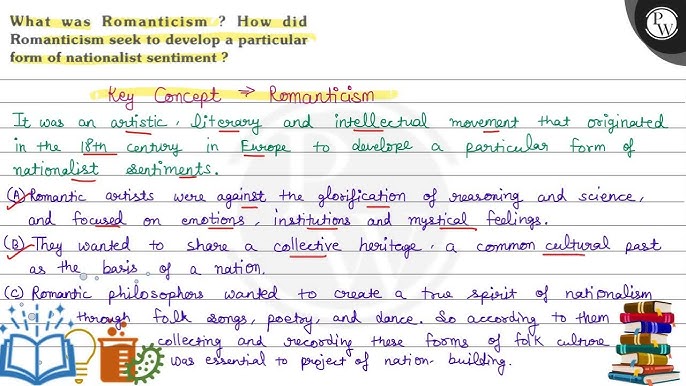 What was Romanticism ? How did
Romanticism seek to develop a particular
form of nationalist sentiment ?
PW
Key Concept → Romanticism
It was an artistic, literary and intellectual movement that originated
in the 18th century in Europe to develope a particular form of
nationalist sentiments.
(A) Romantic artists were against the glorification of reasoning and science,
and focused on emotions, institutions and mystical feelings.
(B) They wanted to share a collective heritage, a common cultural past
as the basis of a nation.
(C) Romantic philosophers wanted to create a true spirit of nationalism
through folk songs, poetry, and dance. So according to them
collecting and recording these forms of folk culture
was essential to project of nation- building.